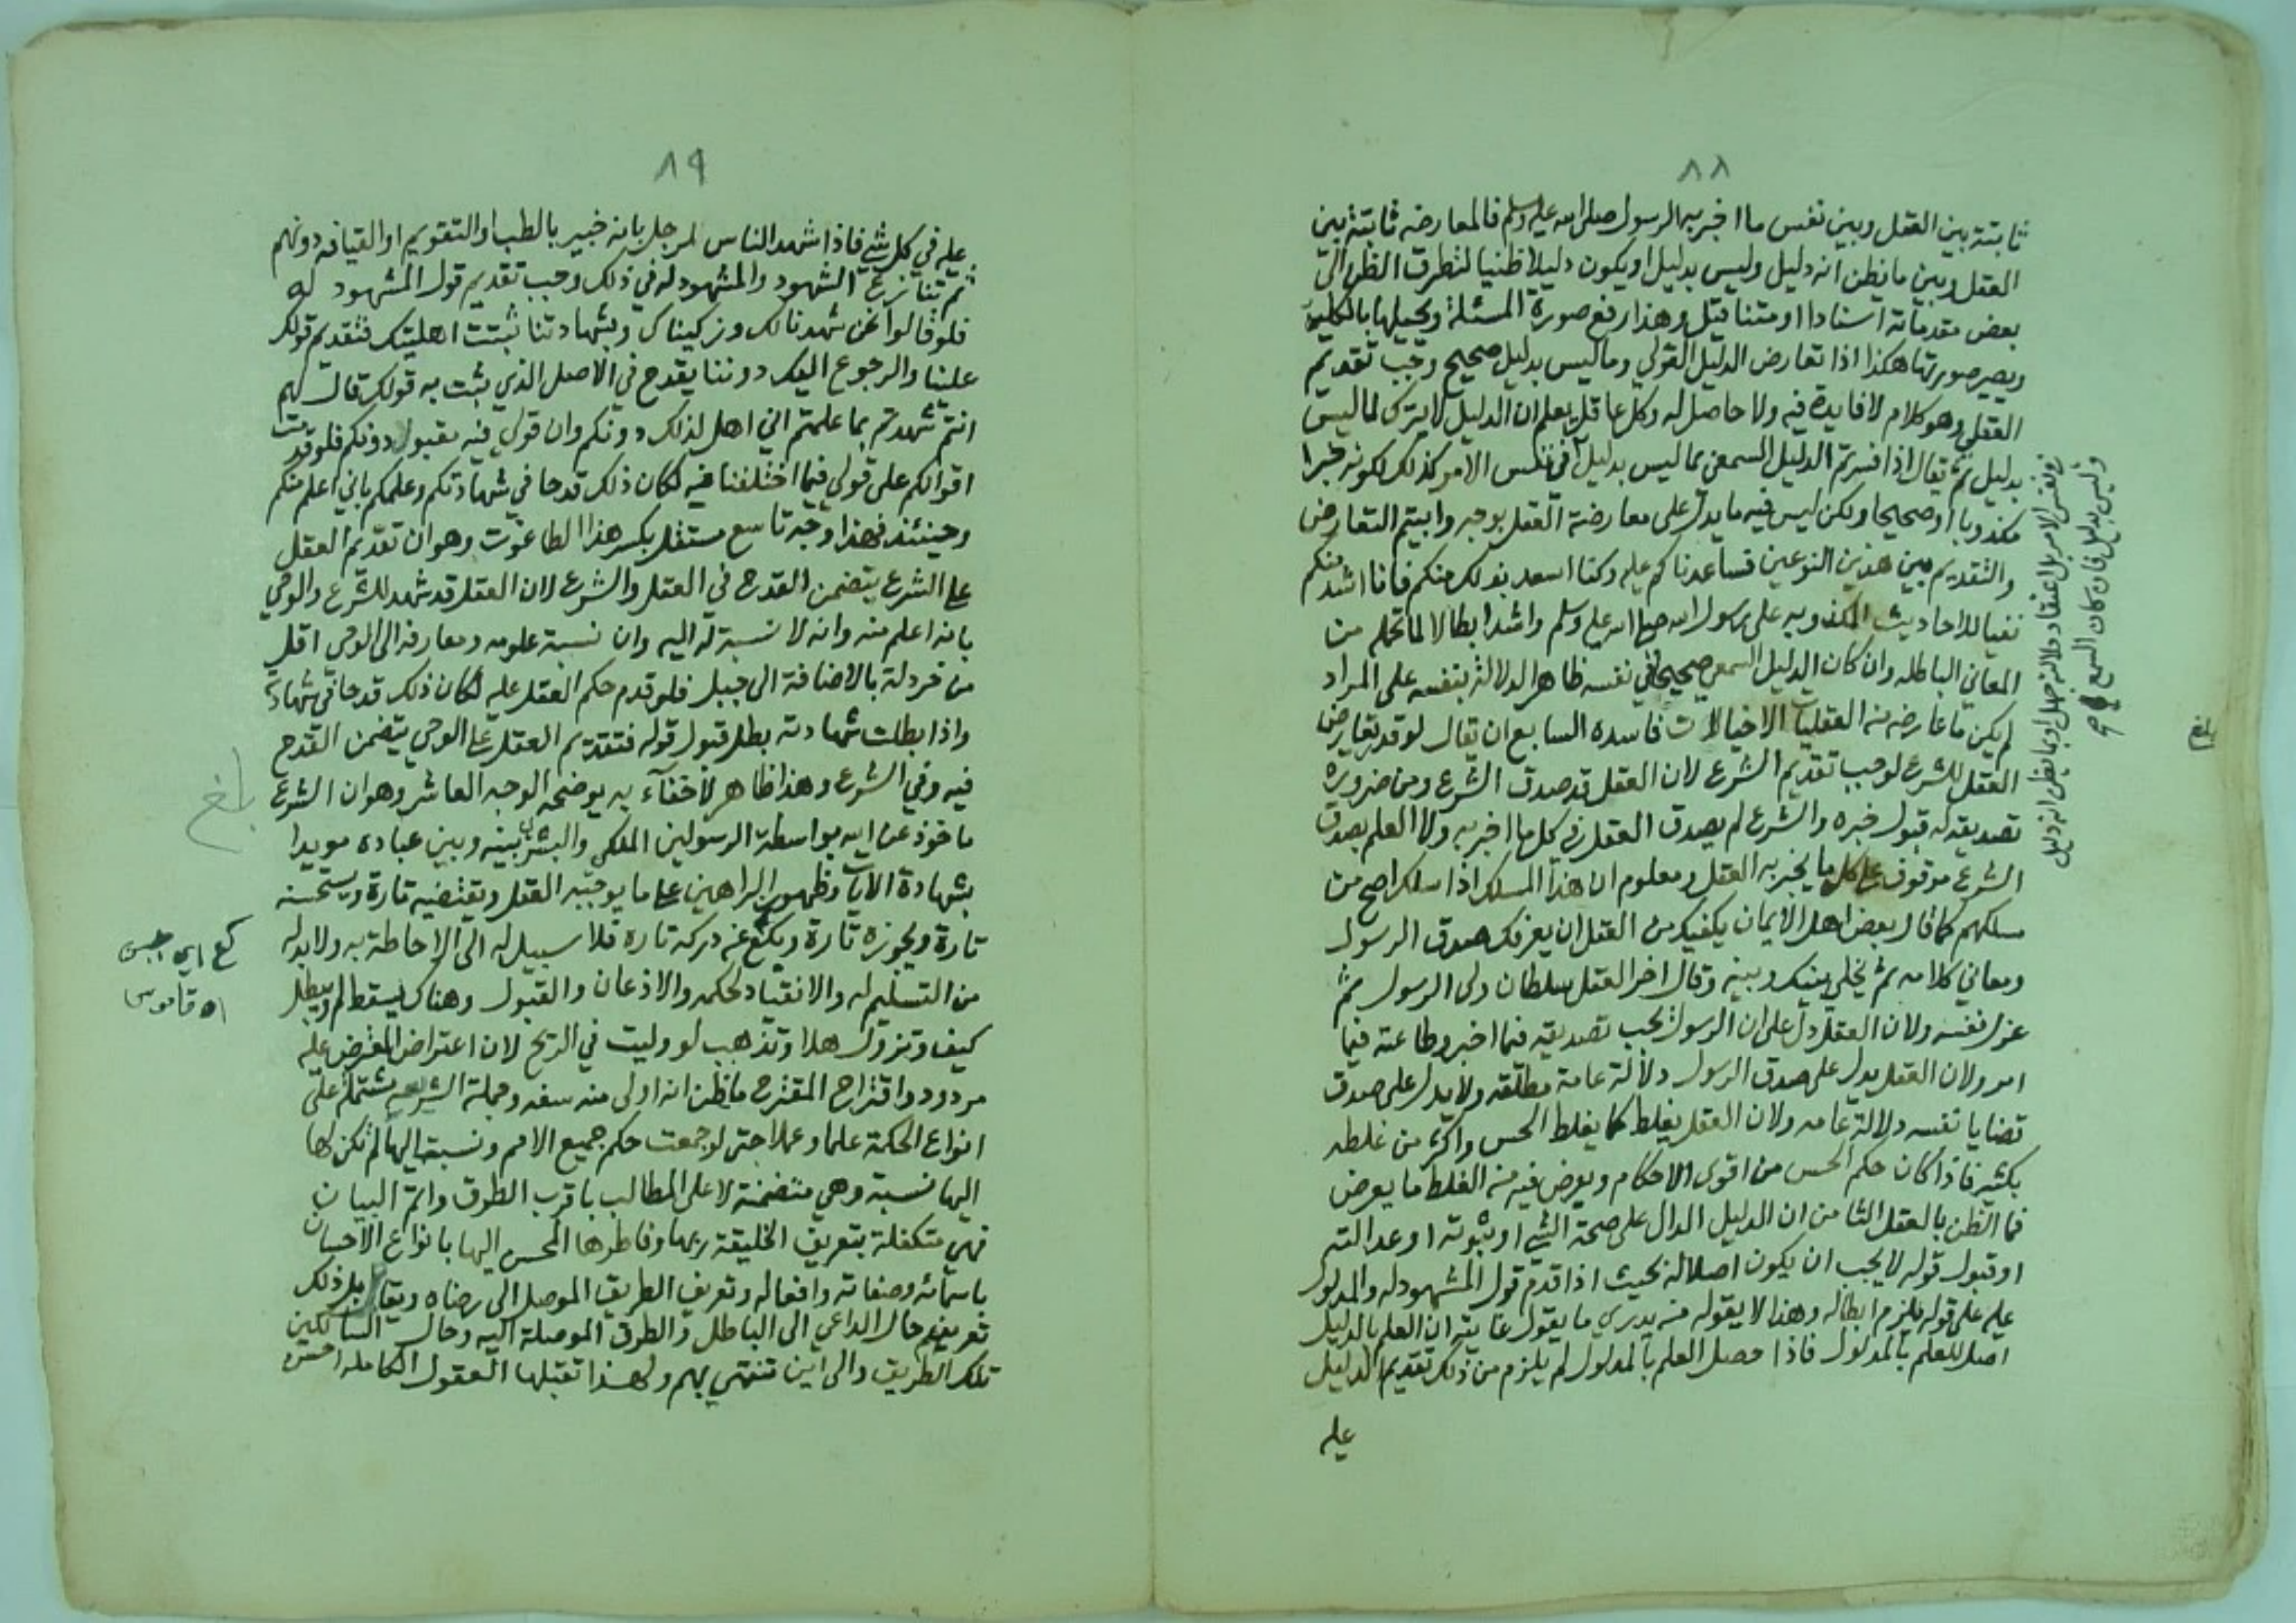 ٨٨
ثابتة بين العقل وبين نفس ما اخبر به الرسول صلى الله عليه وسلم فالمعارضه ثابتة بين
العقل وبين ما يظن انه دليل وليس بدليل او يكون دليلا ظنيا لتطرق الظن الى
بعض مقدماته اسنادا او متنا قيل وهذا رفع صورة المسئلة ويحيلها بالكلية
ويصير صورتها هكذا اذا تعارض الدليل القولي وما ليس بدليل صحيح وجب تقديم
العقلي وهو كلام لا فايدة فيه ولا حاصل له وكل عاقل يعلم ان الدليل لا يترك لما ليس
بدليل ثم يقال اذا فسرتم الدليل السمعي بما ليس بدليل في نفس الامر كذلك لكونه خبرا
مكذوبا او صحيحا ولكن ليس فيه ما يدل على معارضة العقل بوجه وابيتم التعارض
والتقديم بين هذين النوعين فساعدناكم عليه وكنا اسعد بذلك منكم فانا اشد منكم
نفيا للاحاديث المكذوبه على رسول الله صلى الله عليه وسلم واشد ابطالا لما تحمله من
المعاني الباطله وان كان الدليل السمعي صحيحا في نفسه ظاهر الدلالة بنفسه على المراد
لم يكن ما عارضه من العقليات الا خيالات فاسده السابع ان يقال لو قدر تعارض
العقل للشرع لوجب تقديم الشرع لان العقل قد صدق الشرع ومن ضرورة
تصديقه له قبول خبره والشرع لم يصدق العقل في كل ما اخبر به ولا العلم بصدق
الشرع موقوف على كل ما يخبر به العقل ومعلوم ان هذا المسلك اذا سلك اصح من
مسلكهم كما قال بعض اهل الايمان يكفيك من العقل ان يعرفك صدق الرسول
ومعاني كلامه ثم يخلي بينك وبينه وقال اخر العقل سلطان ولى الرسول ثم
عزل نفسه ولان العقل دل على ان الرسول يجب تصديقه فيما اخبر وطاعته فيما
امر ولان العقل يدل على صدق الرسول دلالة عامة مطلقه ولا يدل على صدق
قضايا نفسه دلالة عامه ولان العقل يغلط كما يغلط الحس واكثر من غلطه
بكثير فاذا كان حكم الحس من اقوى الاحكام ويعرض فيه من الغلط ما يعرض
فما الظن بالعقل الثامن ان الدليل الدال على صحة الشي او ثبوته او عدالته
او قبول قوله لا يجب ان يكون اصلا له بحيث اذا قدم قول المشهود له والمدلول
عليه على قوله يلزم ابطاله وهذا لا يقوله من يدري ما يقول غايته ان العلم بالدليل
اصل للعلم بالمدلول فاذا حصل العلم بالمدلول لم يلزم من ذلك تقديم الدليل
عليه
في نفس الامر بل اعتقاد دلالته جهل او بما يظن انه دليل
وليس بدليل فان كان السمع
صح
بلغ
٨٩
عليه في كل شي فاذا شهد الناس لرجل بانه خبير بالطب او التقويم او القيافه دونهم
ثم تنازع الشهود والمشهود له في ذلك وجب تقديم قول المشهود له
فلو قالوا نحن شهدنا لك وزكيناك وبشهادتنا ثبتت اهليتك فتقديم قولك
علينا والرجوع اليك دوننا يقدح في الاصل الذي ثبت به قولك قال لهم
انتم شهدتم بما علمتم اني اهل لذلك دونكم وان قولي فيه مقبول دونكم فلو قدمت
اقوالكم على قولي فيما اختلفنا فيه لكان ذلك قدحا في شهادتكم وعلمكم باني اعلم منكم
وحينئذ فهذا وجه تاسع مستقل بكسر هذا الطاغوت وهو ان تقديم العقل
على الشرع يتضمن القدح في العقل والشرع لان العقل قد شهد للشرع والوحي
بانه اعلم منه وانه لا نسبة له اليه وان نسبة علومه ومعارفه الى الوحي اقل
من خردلة بالاضافة الى جبل فلو قدم حكم العقل عليه لكان ذلك قدحا في شهادته
واذا بطلت شهادته بطل قبول قوله فتقديم العقل على الوحي يتضمن القدح
فيه وفي الشرع وهذا ظاهر لا خفاء به يوضحه الوجه العاشر وهو ان الشرع
ماخوذ عن الله بواسطة الرسولين الملكي والبشري بينه وبين عباده مويدا
بشهادة الايات وظهور البراهين على ما يوجبه العقل ويقتضيه تارة ويستحسنه
تارة ويجوزه تارة ويكع عن دركه تاره فلا سبيل له الى الاحاطة به ولا بد له
من التسليم له والانقياد لحكمه والاذعان والقبول وهناك يسقط لم ويبطل
كيف وتزول هلا وتذهب لو وليت في الريح لان اعتراض المعترض عليه
مردود واقتراح المقترح ما يظن انه اولى منه سفه وجملة الشريعة مشتملة على
انواع الحكمة علما وعملا حتى لو جمعت حكم جميع الامم ونسبت اليها لم تكن لها
اليها نسبة وهي متضمنة لاعلى المطالب باقرب الطرق واتم البيان
فهي متكفلة بتعريف الخليقة ربها وفاطرها المحسن اليها بانواع الاحسان
باسمائه وصفاته وافعاله وتعريف الطريق الموصل الى رضاه ويقابل ذلك
تعريف حال الداعي الى الباطل والطرق الموصلة اليه وحال السالكين
تلك الطريق والى اين تنتهي بهم ولهذا تقبلها العقول الكامله احسن
بلغ
كع اي جبن
اه قاموس